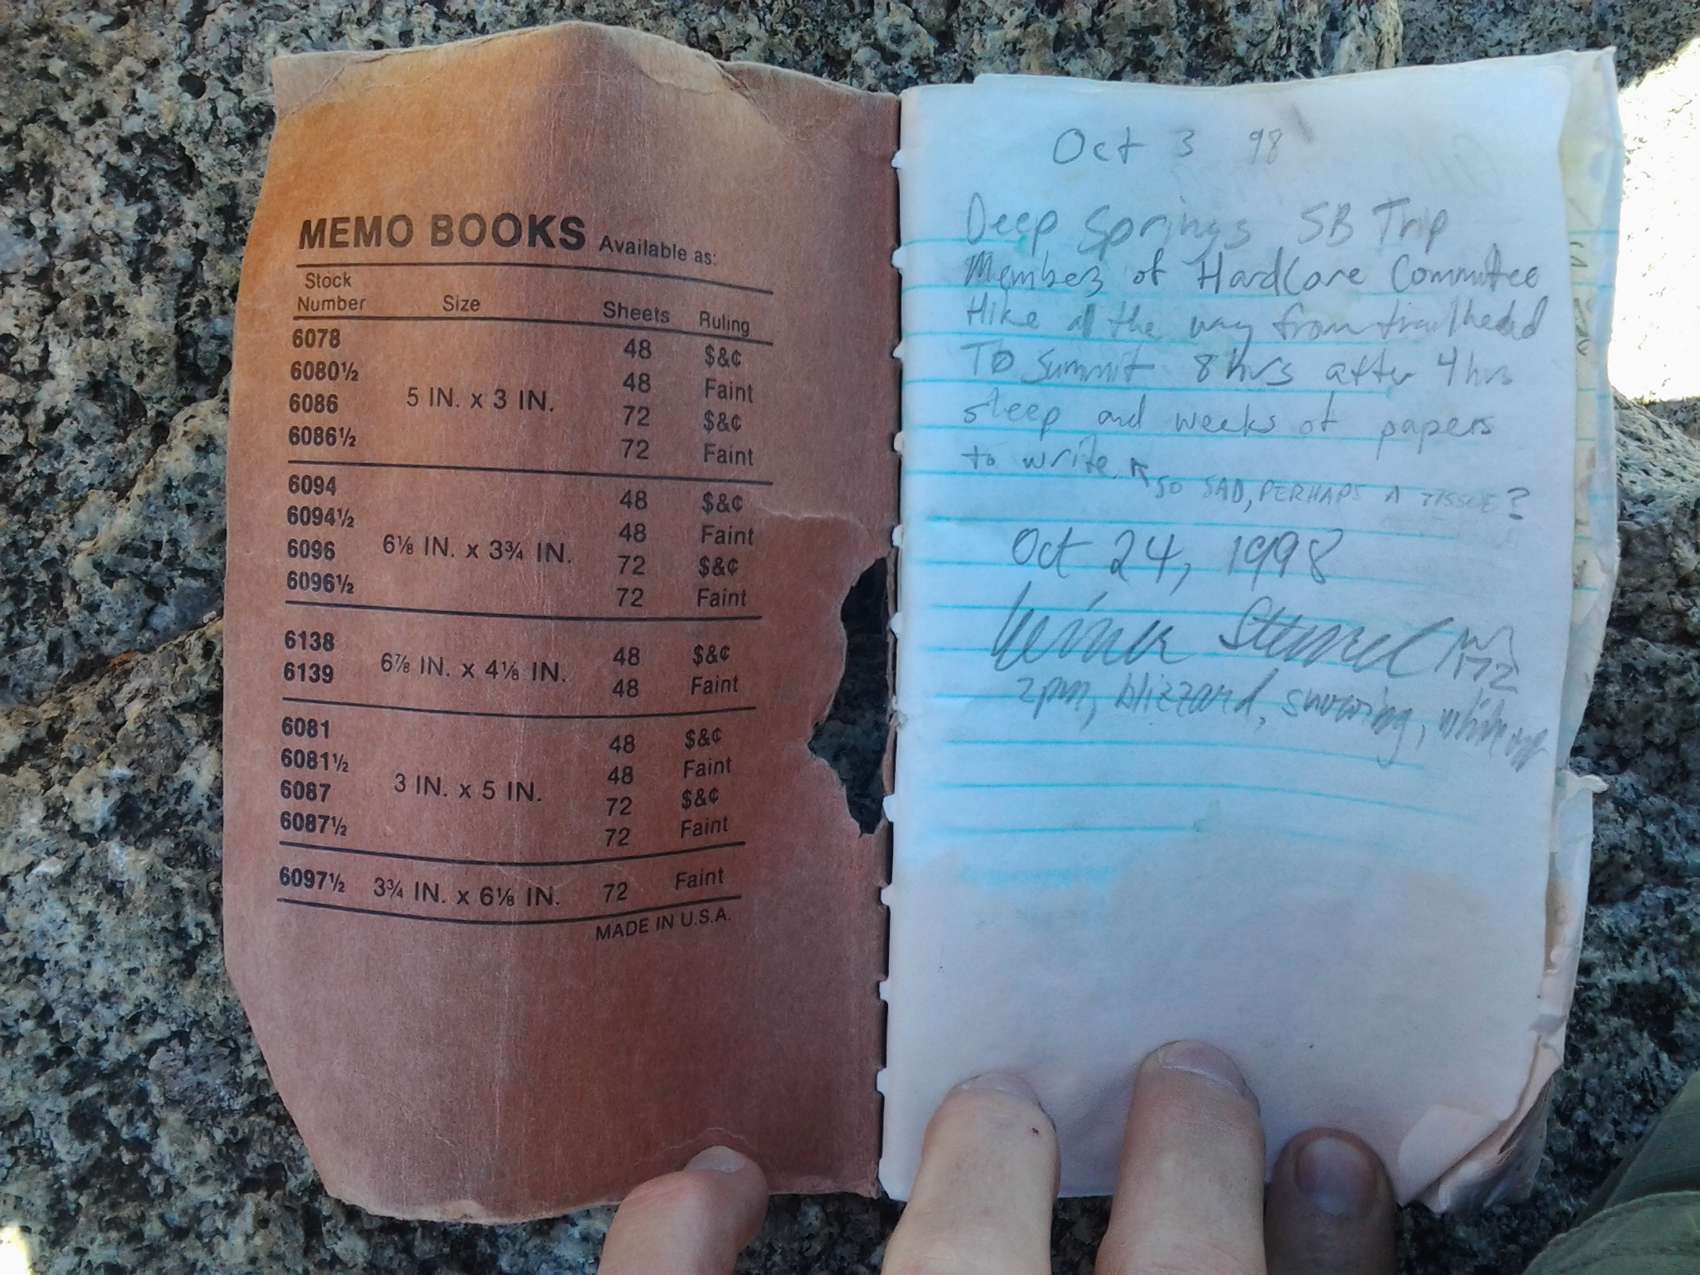 MEMO BOOKS Available as:
Stock Number Size Sheets Ruling
6078 48 $&¢
6080½ 48 Faint
5 IN. x 3 IN.
6086 72 $&¢
6086½ 72 Faint
6094 48 $&¢
6094½ 48 Faint
6⅛ IN. x 3¾ IN.
6096 72 $&¢
6096½ 72 Faint
6138 48 $&¢
6⅞ IN. x 4⅛ IN.
6139 48 Faint
6081 48 $&¢
6081½ 48 Faint
3 IN. x 5 IN.
6087 72 $&¢
6087½ 72 Faint
6097½ 3¾ IN. x 6⅛ IN. 72 Faint
MADE IN U.S.A.
Oct 3 98
Deep Springs SB Trip
Members of HardCore Committee
Hike all the way from trailhead
To Summit 8 hrs after 4 hrs
sleep and weeks of papers
to write. SO SAD, PERHAPS A TISSUE?
Oct 24, 1998
2pm, blizzard, snowing,